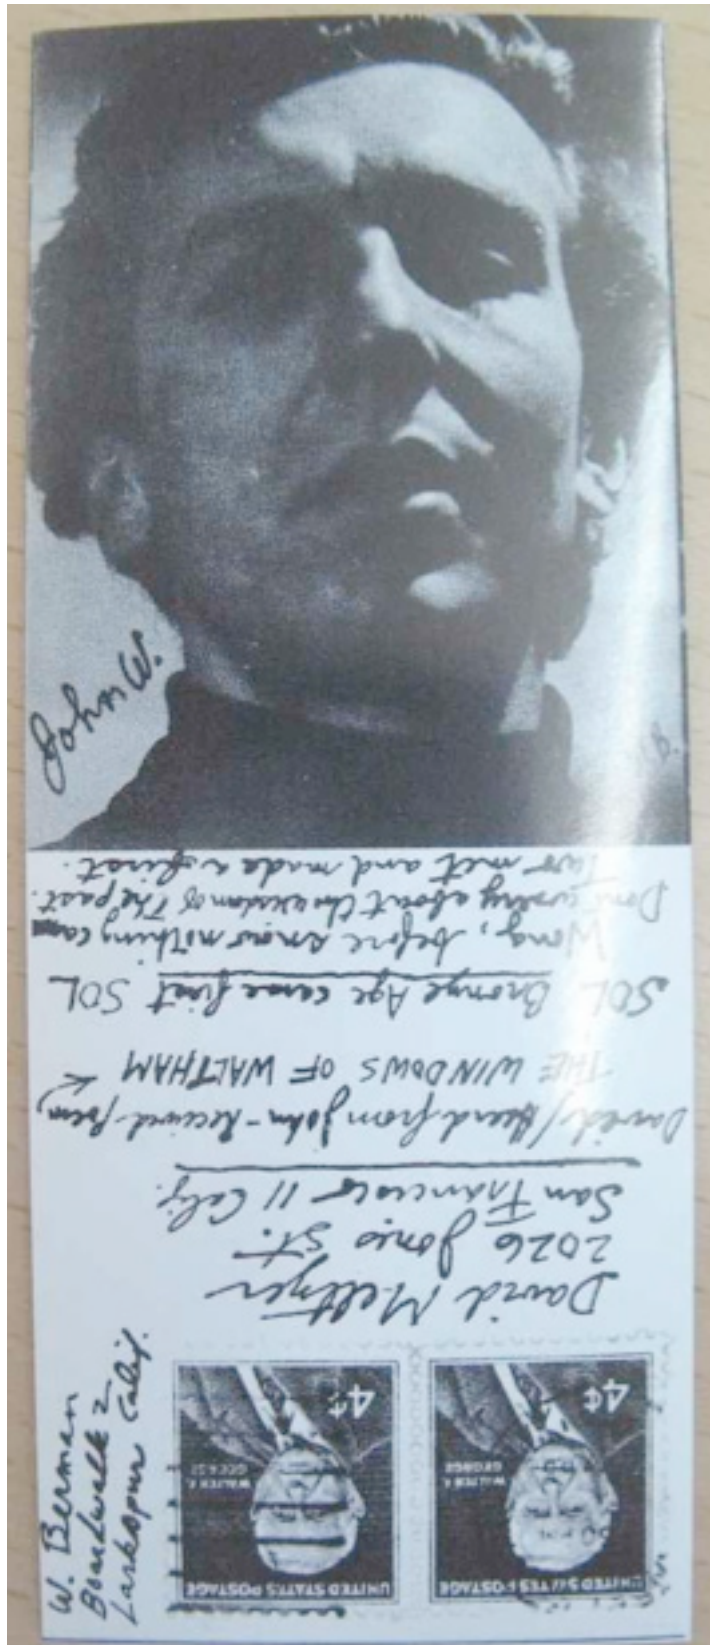 John W.
W. Berman
Boardwalk 2
Larkspur Calif.
UNITED STATES POSTAGE
WALTER F.
GEORGE
4¢
UNITED STATES POSTAGE
WALTER F.
GEORGE
4¢
David Meltzer
2026 Jones St.
San Francisco 11 Calif.
David / Heard from John - Received poem
THE WINDOWS OF WALTHAM
SOL Bronze Age came first SOL
Wong, before know nothing can
Dont worry about the wisdom of the past.
Two met and made a first.